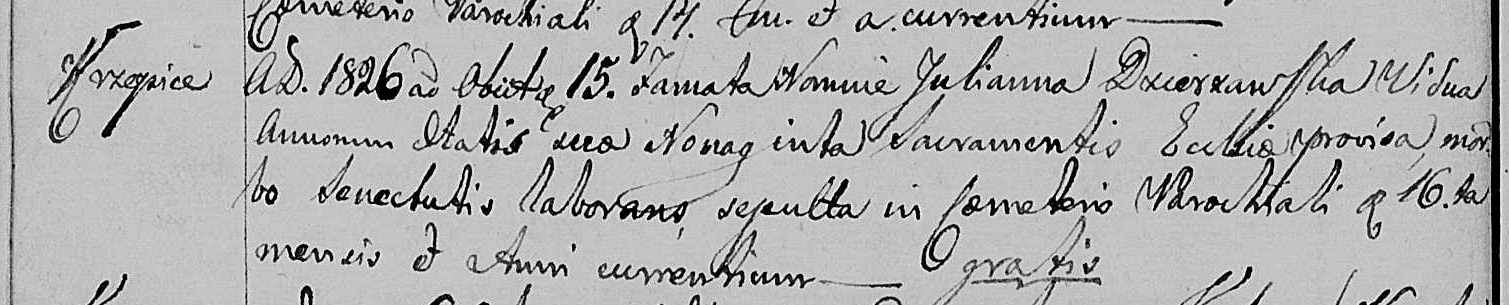 Cœmeterio Parochiali q 14. hu. et a. currentium
Krzepice
AD. 1826 ad Obiit q 15. Famata Nomine Julianna Dzierzawska Vidua
Annorum Ætatis suæ Nonaginta Sacramentis Eccliæ provisa, mor-
bo Senectutis laborans, sepulta in Cœmeterio Parochiali q 16.ta
mensis et Anni currentium gratis